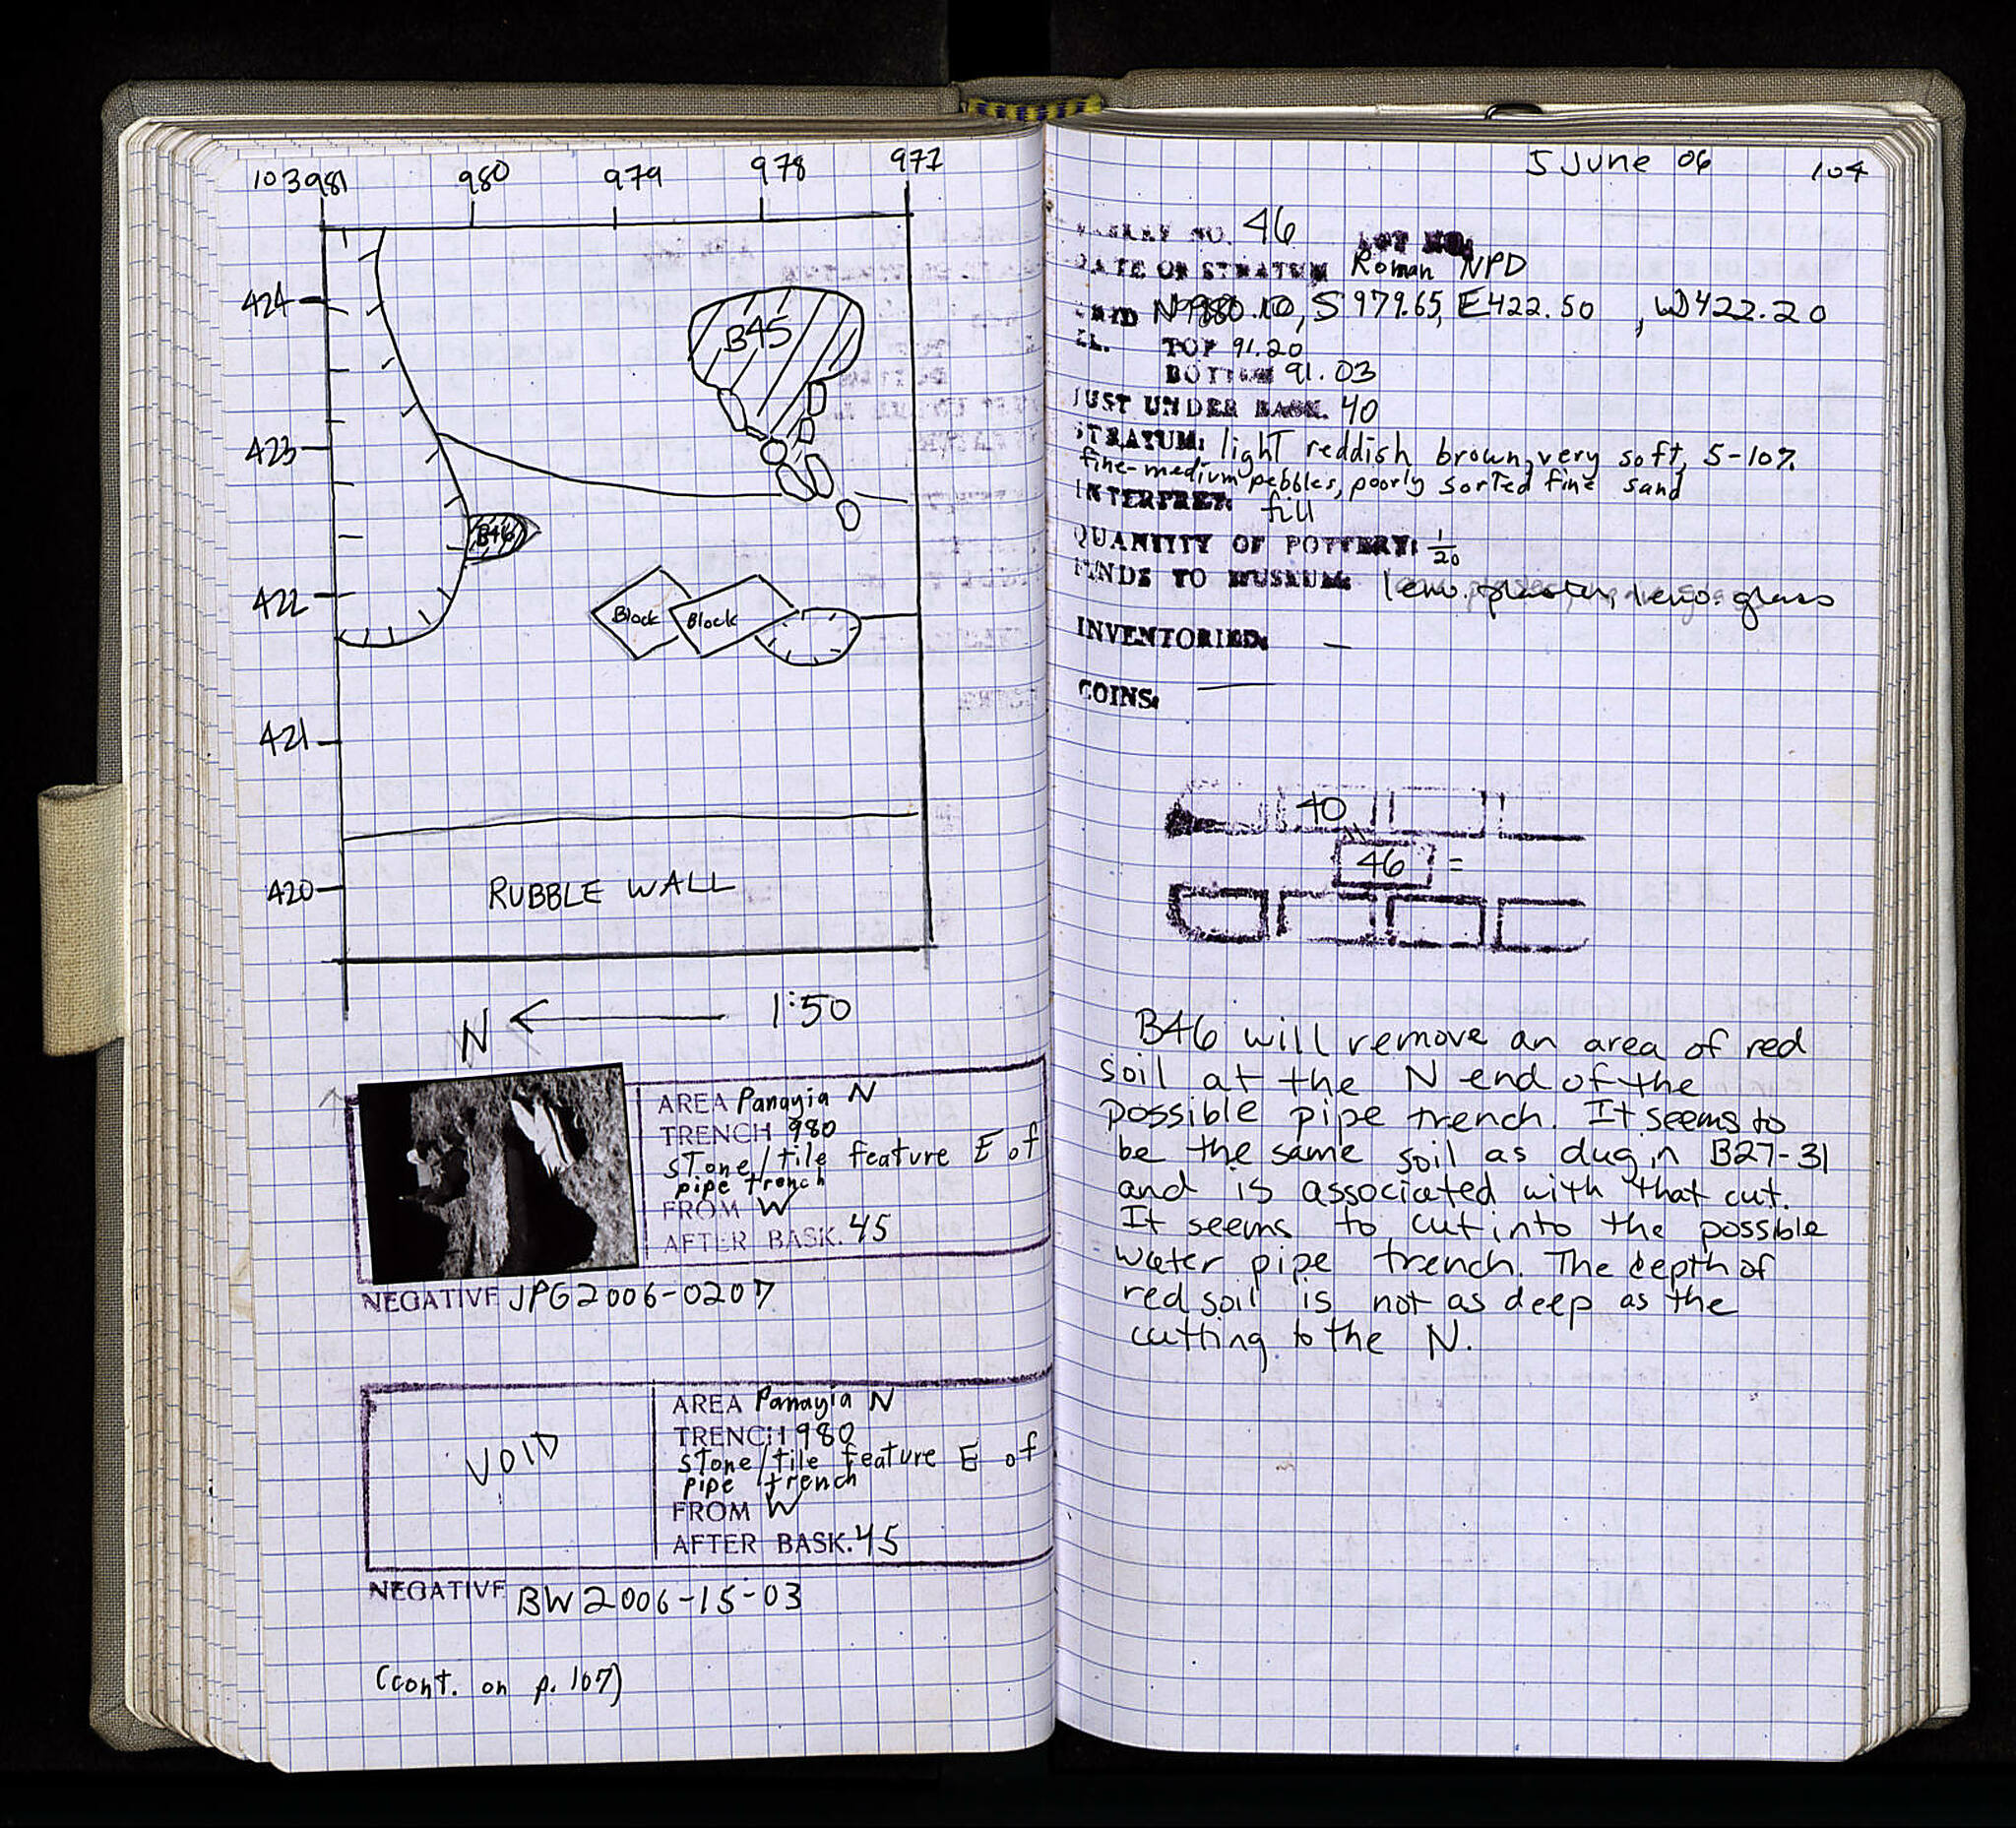 103
981 980 979 978 977
424
B45
423
B46
422
Block Block
421
420
RUBBLE WALL
N 1:50
AREA Panayia N
TRENCH 980
stone/tile feature E of
pipe trench
FROM W
AFTER BASK. 45
NEGATIVE JPG2006-0207
VOID
AREA Panayia N
TRENCH 980
stone/tile feature E of
pipe trench
FROM W
AFTER BASK. 45
NEGATIVE BW2006-15-03
(cont. on p. 107)
5 June 06 104
BASKET NO. 46 LOT NO.
DATE OF STRATUM Roman NPD
GRID N980.10, S979.65, E422.50, W422.20
EL. TOP 91.20
BOTTOM 91.03
JUST UNDER BASK. 40
STRATUM: light reddish brown, very soft, 5-10%
fine-medium pebbles, poorly sorted fine sand
INTERPRET: fill
QUANTITY OF POTTERY: 1/20
FINDS TO MUSEUM: 1 env. plaster, 1 env. glass
INVENTORIED: —
COINS: —
40
46 =
B46 will remove an area of red
soil at the N end of the
possible pipe trench. It seems to
be the same soil as dug in B27-31
and is associated with that cut.
It seems to cut into the possible
water pipe trench. The depth of
red soil is not as deep as the
cutting to the N.